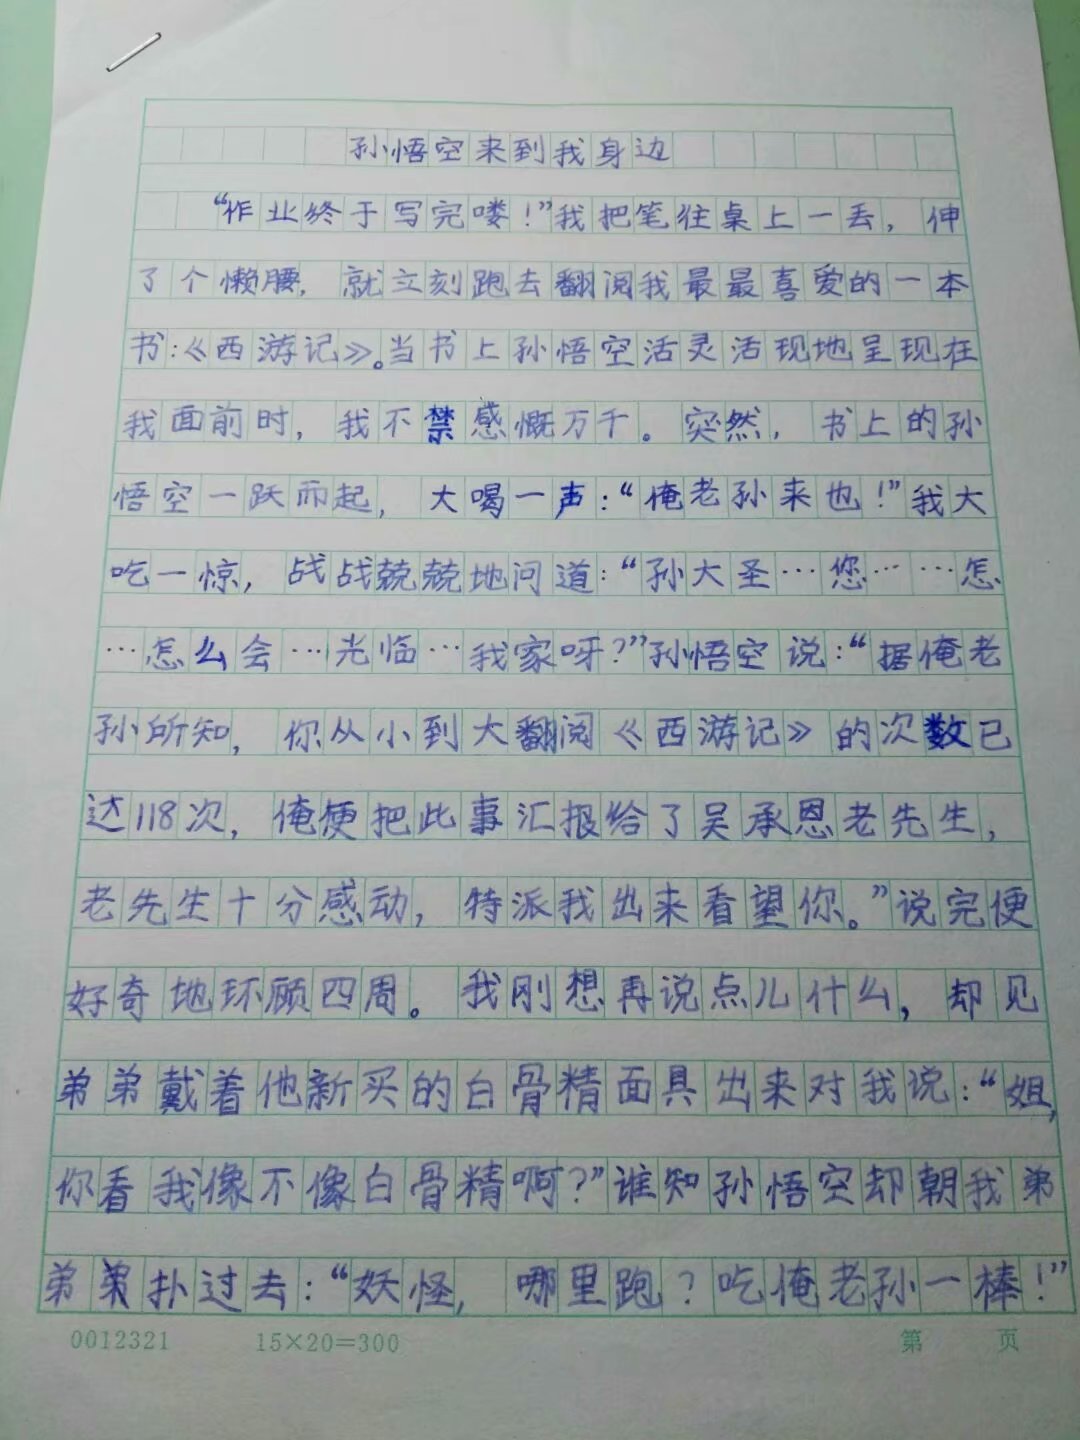 孙悟空来到我身边
“作业终于写完喽！”我把笔往桌上一丢，伸
了个懒腰，就立刻跑去翻阅我最最喜爱的一本
书：《西游记》。当书上孙悟空活灵活现地呈现在
我面前时，我不禁感慨万千。突然，书上的孙
悟空一跃而起，大喝一声：“俺老孙来也！”我大
吃一惊，战战兢兢地问道：“孙大圣…您……怎
…怎么会…光临…我家呀？”孙悟空说：“据俺老
孙所知，你从小到大翻阅《西游记》的次数已
达118次，俺便把此事汇报给了吴承恩老先生，
老先生十分感动，特派我出来看望你。”说完便
好奇地环顾四周。我刚想再说点儿什么，却见
弟弟戴着他新买的白骨精面具出来对我说：“姐，
你看我像不像白骨精啊？”谁知孙悟空却朝我弟
弟弟扑过去：“妖怪，哪里跑？吃俺老孙一棒！”
0012321 15×20=300 第 页